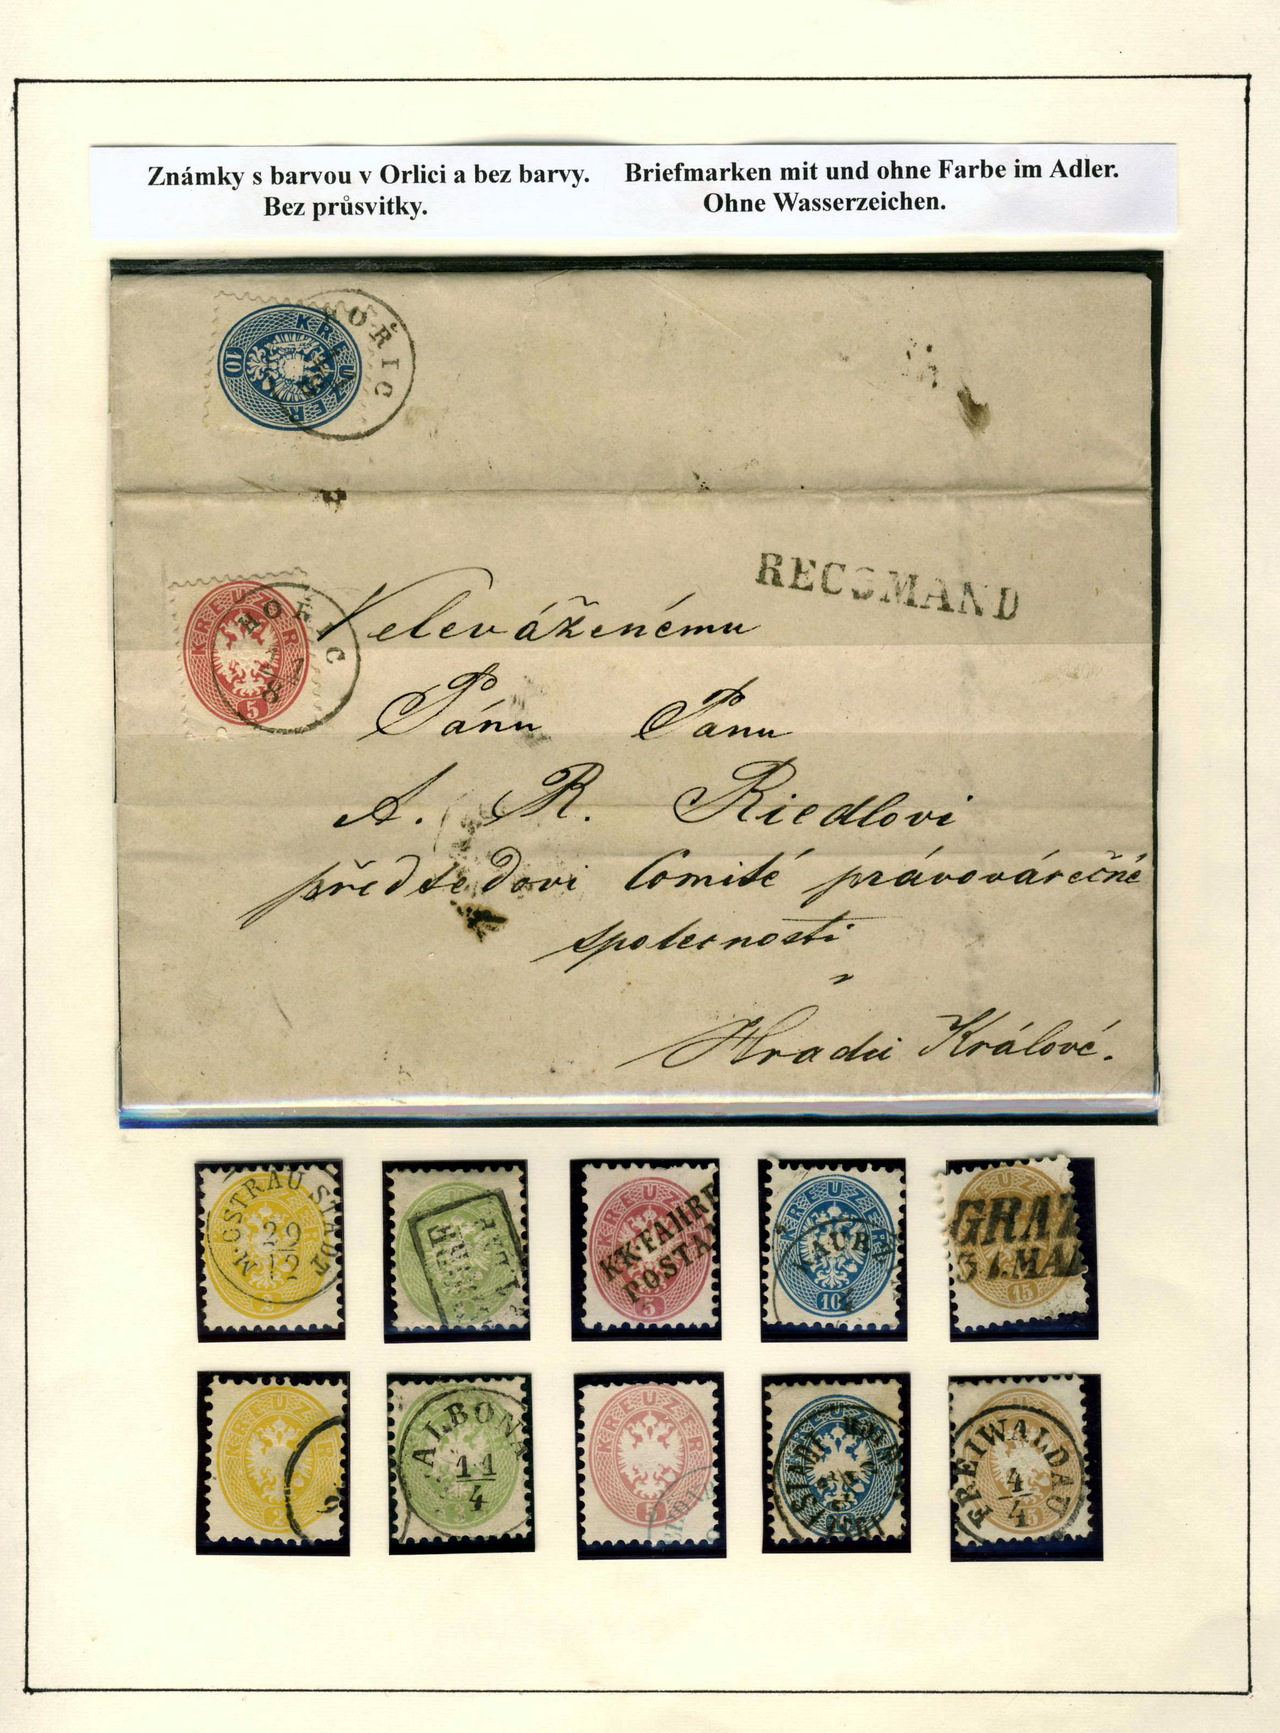 Známky s barvou v Orlici a bez barvy.
Bez průsvitky.
Briefmarken mit und ohne Farbe im Adler.
Ohne Wasserzeichen.
KREUZER
10
HOŘIC
RECOMAND
KREUZER
5
HOŘIC
Veleváženému
Pánu Panu
A. R. Riedlovi
předsedovi Comité právovárečné
společnosti
v
Hradci Králové.
M. OSTRAU STADT
29
12
2
KREUZER
K.K. FAHRP
POSTA
5
KREUZER
10
GRAT
31. MAI
15
KREUZER
2
ALBONA
11
4
3
KREUZER
5
FREIWALDAU
4
4
15